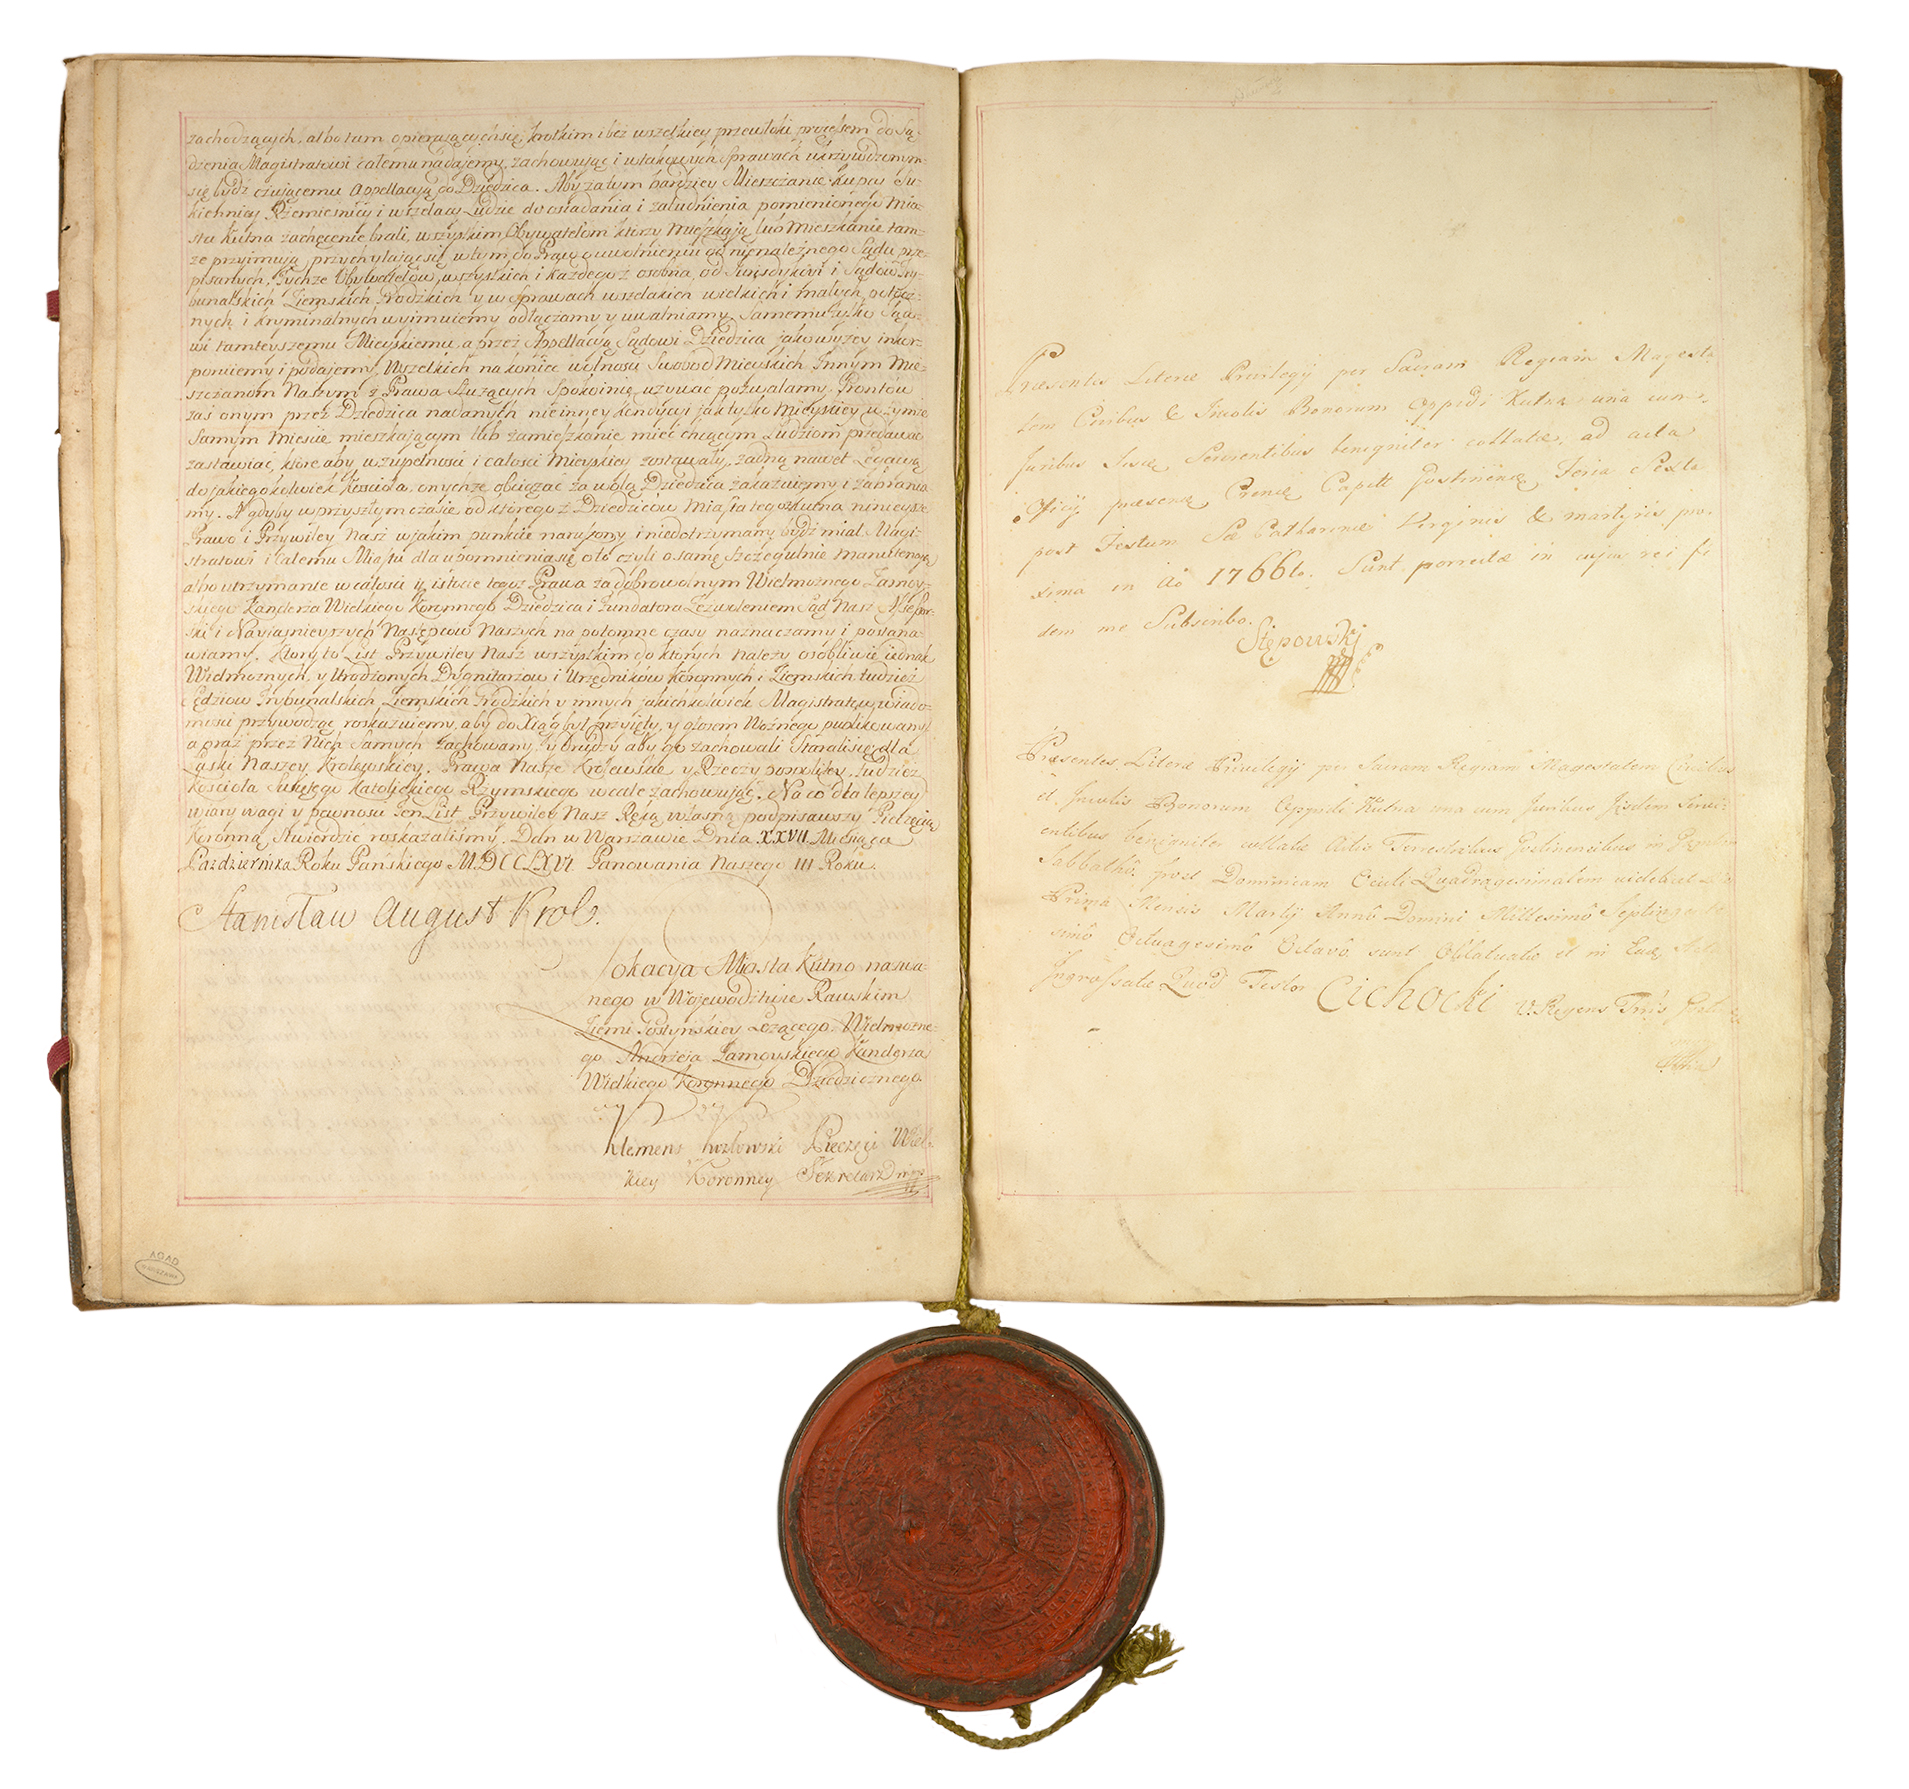 zachodzących, albo tam opierających się, krotkim i bez wszelkiey przewłoki processem do Są-
dzenia Magistratowi całemu nadajemy, zachowując i w takowych Sprawach ukrzywdzonym
się bydź czującemu Appellacyą do Dziedzica. Aby zatym bardziey Mieszczanie Kupcy Su-
kiennicy Rzemieśnicy i wszelacy Ludzie do osiadania i zaludnienia pomienionego Mia-
sta Kutna zachęcenie brali, wszystkim Obywatelom ktorzy mieszkają lub Mieszkanie tam-
że przyimują przychylając się w tym do Praw o uwolnieniu od nienależnego Sądu prze-
pisanych, Tychże Obywatelow, wszystkich i każdego z osobna od Jurisdykcyi i Sądow Try-
bunalskich Ziemskich Grodzkich y w Sprawach wszelakich wielkich i małych potocz-
nych i kryminalnych wyimuiemy odłączamy y uwalniamy, Samemu tylko Sądo-
wi tamteyszemu Mieyskiemu, a przez Appellacyą Sądowi Dziedzica jako wyżey inkor-
poruiemy i poddajemy, Wszelkich na koniec wolności Swobod Mieyskich Innym Mie-
szczanom Naszym z Prawa służących Spokoinie używać pozwalamy. Grontow
zaś onym przez Dziedzica nadanych nie inney kondycyi jak tylko Mieyskiey w tymże
Samym Mieście mieszkającym lub zamieszkanie mieć chcącym Ludziom przedawac
zastawiać, ktore aby w zupełności i całości Mieyskiey zostawały, żadną nawet Legacyą
do jakiegokolwiek Kościoła, onychże obciążać za wolą Dziedzica zakazuiemy i zabrania-
my. A gdyby w przyszłym czasie od ktorego z Dziedzicow Miasta tego Kutna ninieysze
Prawo i Przywiley Nasz w jakim punkcie naruszony i niedotrzymany bydź miał Magi-
stratowi i całemu Miastu dla upomnienia się oto czyli o samę Szczegulnie manutencyą
albo utrzymanie w całości y istocie tegoż Prawa za dobrowolnym Wielmożnego Zamoy-
skiego Kanclerza Wielkiego Koronnego Dziedzica i Fundatora Zezwoleniem Sąd Nasz Assessor-
ski i Nayjaśnieyszych Nasępcow Naszych na potomne czasy naznaczamy i postana-
wiamy. Ktory to List Przywiley Nasz wszystkim do ktorych należy osobliwie iednak
Wielmożnych, y Urodzonych Dygnitarzow i Urzędnikow Koronnych i Ziemskich tudzież
Sędziow Trybunalskich, Ziemskich Grodzkich y innych jakichkolwiek Magistratow wiado-
mości przywodząc roskazuiemy, aby do Xiąg był przyięty, y głosem Woźnego publikowany
a oraz przez Nich Samych zachowany, y Drudzy aby go zachowali Starali się dla
Łaski Naszey Krolewskiey. Prawa Nasze Krolewskie y Rzeczy pospolitey, tudzież
Kościoła Swiętego Katolickiego Rzymskiego w cale zachowując. Na co dla lepszey
wiary wagi y pewności Ten List Przywiley Nasz Ręką własną podpisawszy Pieczęcią
Koronną Stwierdzic roskazaliśmy. Dan w Warszawie Dnia XXVII Miesiąca
Pazdziernika Roku Pańskiego M.DCCLXVI Panowania Naszego III Roku.
Stanisław August Krol.
Lokacya Miasta Kutno nazwa-
nego w Wojewodztwie Rawskim
Ziemi Gostyńskiey Leżącego, Wielmożne-
go Andrzeia Zamoyskiego Kanclerza
Wielkiego Koronnego Dziedzicznego.
Klemens Kozłowski Pieczęci Wiel-
kiey Koronney Sekretarz
AGAD
WARSZAWA
Præsentes Literæ Privilegij per Sacram Regiam Magesta
tem Civibus & Incolis Bonorum Oppidi Kutna una cum
Juribus Servientibus benigniter collatæ, ad acta
Officij præsens Crense Capitt Gostinense Feria Sexta
post Festum Sæ Catharinæ Virginis & martyris pro-
xima in Ao 1766to. Sunt porrectæ in cujus rei fi
dem me Subscribo.
Stępowski
Præsentes Literæ Privilegij per Sacram Regiam Magestatem Civibus
et Incolis Bonorum Oppidi Kutna una cum Juribus Iisdem Servi-
entibus benigniter collatæ Actis Terrestribus Gostinensibus in
Sabbatho post Dominicam Oculi Quadragesimalem videlicet Die
Prima Mensis Martij Anno Domini Millesimô Septingente
simô Octuagesimô Octavô sunt Oblatæ et in
Ingrossatæ Quod Testor Cichocki V: Regens